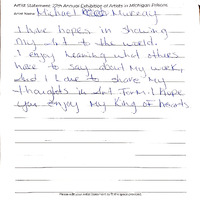 Artist Statement: 27th Annual Exhibition of Artists in Michigan Prisons
Artist Name: Michael
I have hopes in showing
my Art to the world.
I enjoy hearing what others
have to say about my work,
And I love to share my
thoughts in Art form. I hope
you enjoy my king of hearts
Please write your Artist Statement to fit the space provided.